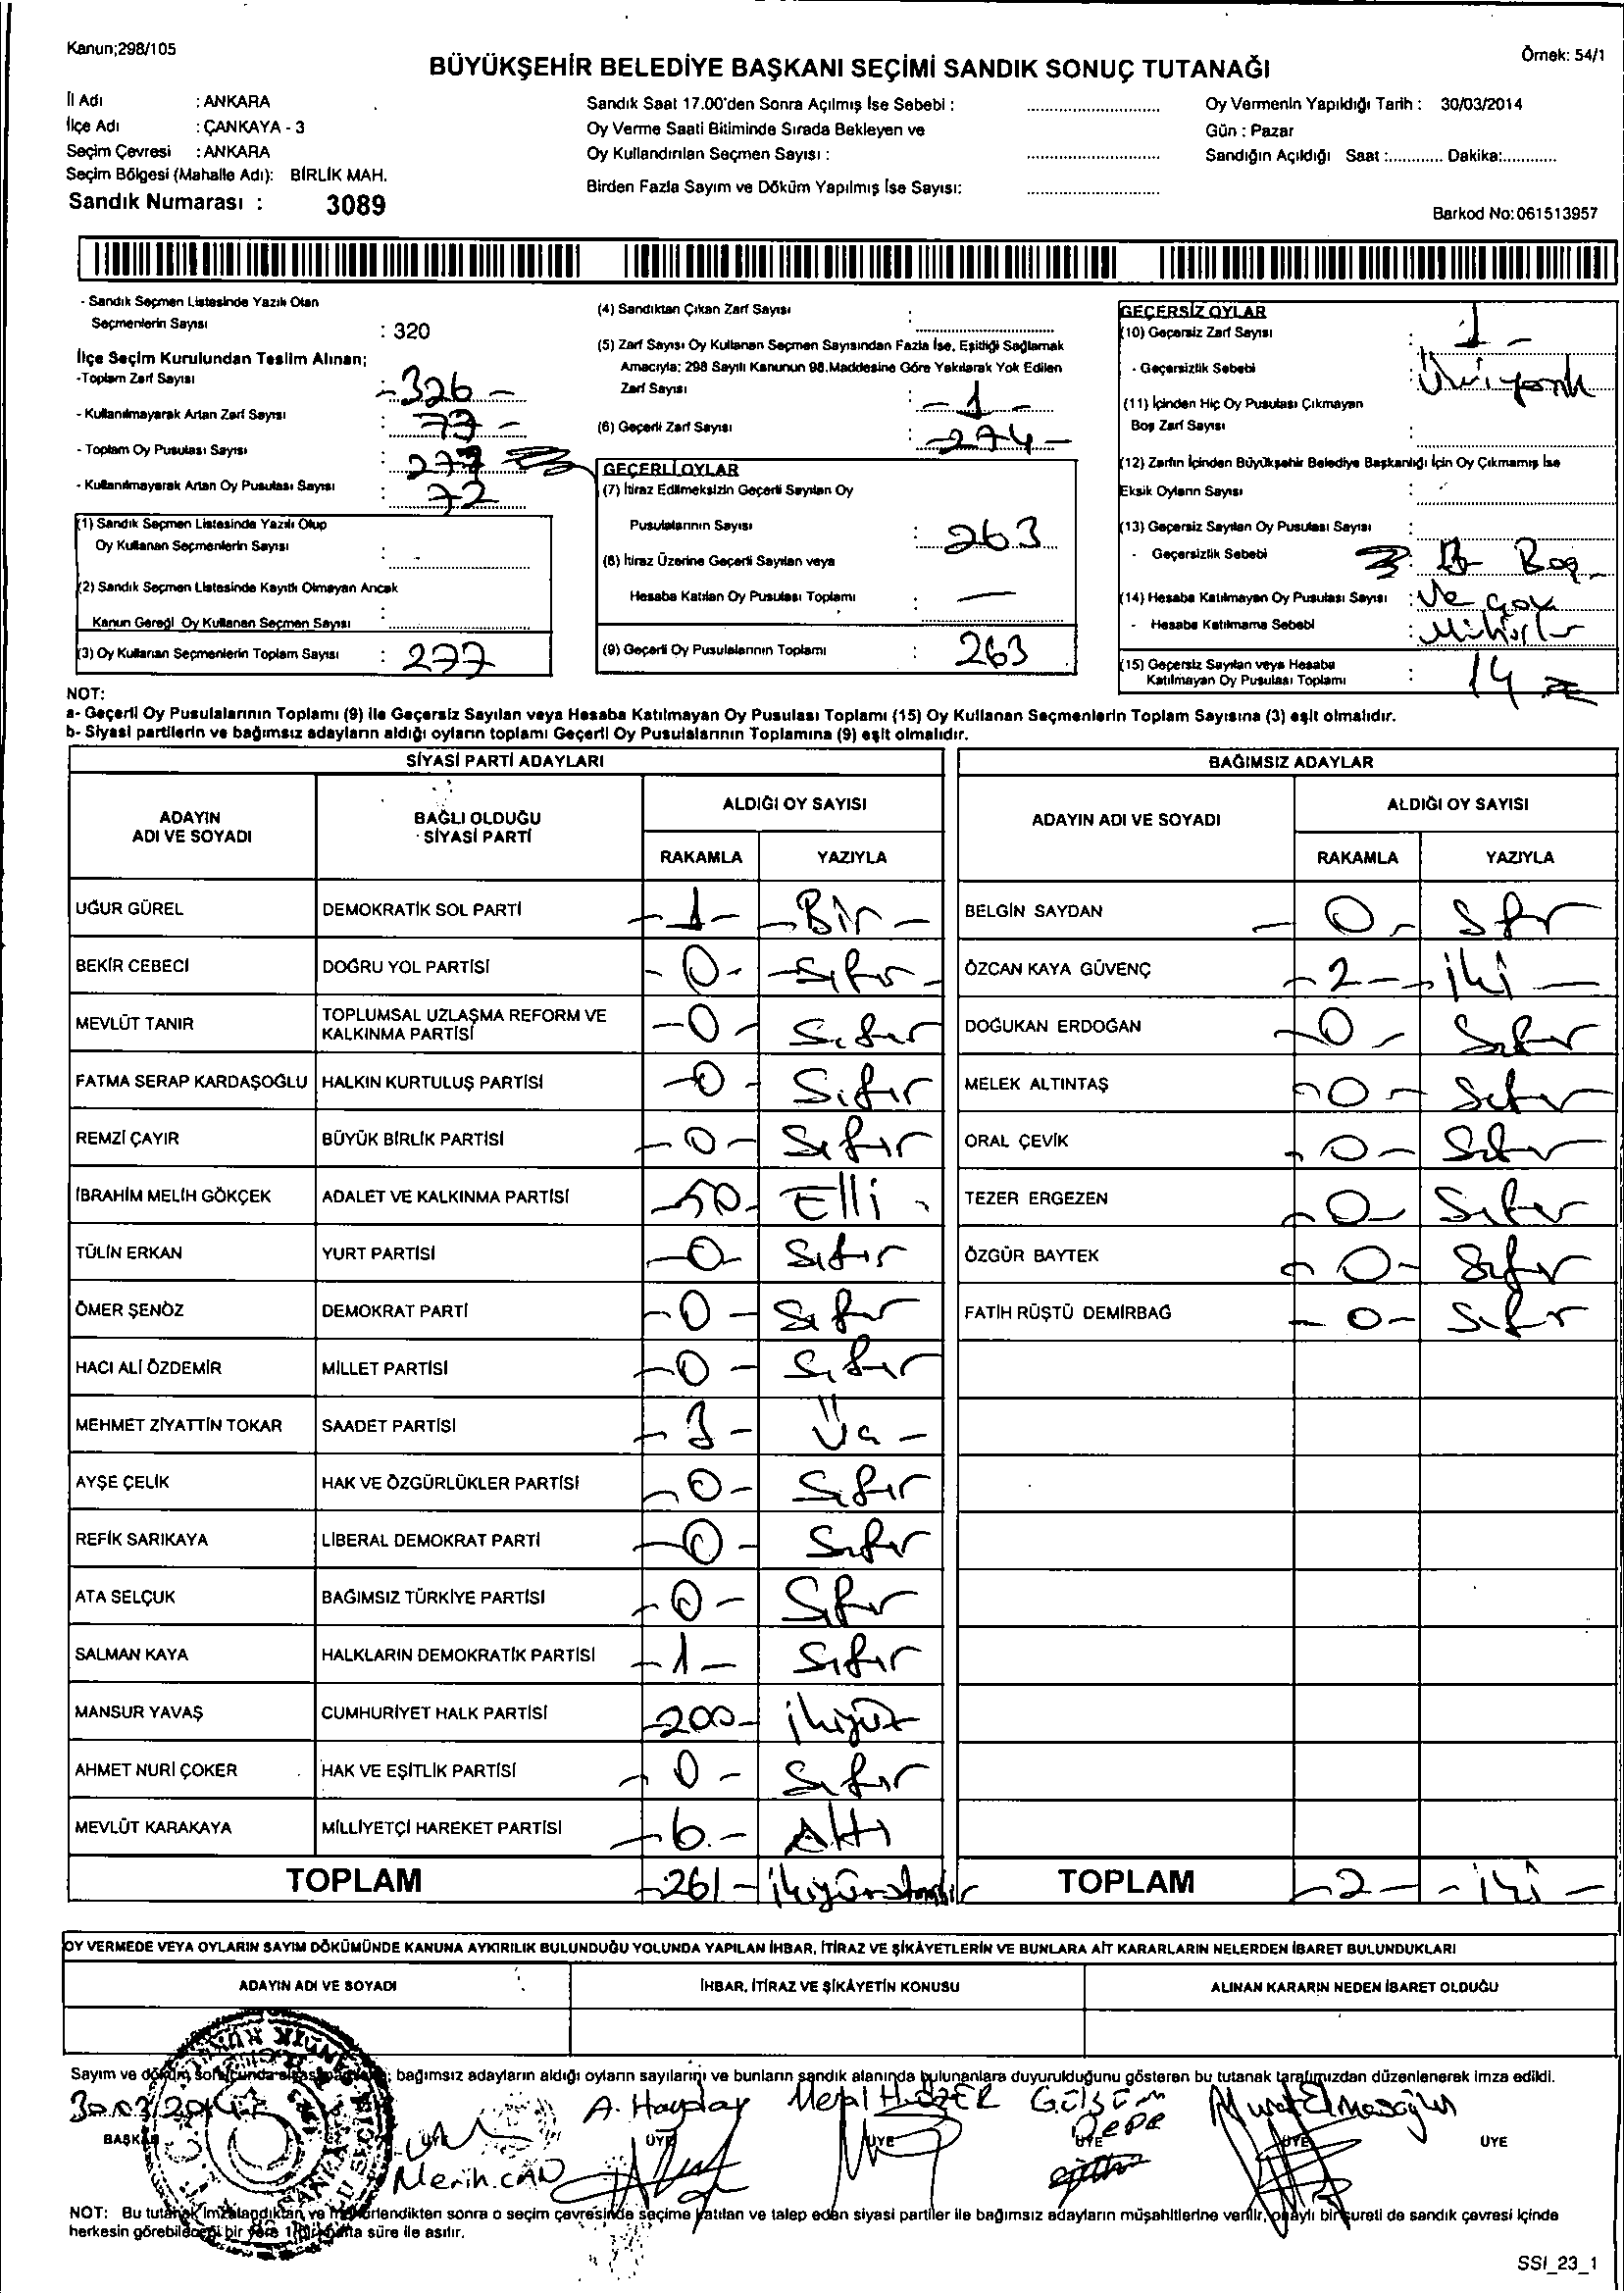 Kanun;298/105
Örnek: 54/1
BÜYÜKŞEHİR BELEDİYE BAŞKANI SEÇİMİ SANDIK SONUÇ TUTANAĞI
İl Adı : ANKARA
İlçe Adı : ÇANKAYA - 3
Seçim Çevresi : ANKARA
Seçim Bölgesi (Mahalle Adı): BİRLİK MAH.
Sandık Numarası : 3089
Sandık Saat 17.00'den Sonra Açılmış İse Sebebi :
Oy Verme Saati Bitiminde Sırada Bekleyen ve
Oy Kullandırılan Seçmen Sayısı :
Birden Fazla Sayım ve Döküm Yapılmış İse Sayısı:
Oy Vermenin Yapıldığı Tarih : 30/03/2014
Gün : Pazar
Sandığın Açıldığı Saat :............ Dakika:............
Barkod No:061513957
- Sandık Seçmen Listesinde Yazılı Olan
Seçmenlerin Sayısı : 320
İlçe Seçim Kurulundan Teslim Alınan;
-Toplam Zarf Sayısı : -326-
- Kullanılmayarak Artan Zarf Sayısı : 77 -
- Toplam Oy Pusulası Sayısı : 277
- Kullanılmayarak Artan Oy Pusulası Sayısı : 72
(1) Sandık Seçmen Listesinde Yazılı Olup
Oy Kullanan Seçmenlerin Sayısı :
(2) Sandık Seçmen Listesinde Kayıtlı Olmayan Ancak
Kanun Gereği Oy Kullanan Seçmen Sayısı :
(3) Oy Kullanan Seçmenlerin Toplam Sayısı : 277
(4) Sandıktan Çıkan Zarf Sayısı :
(5) Zarf Sayısı Oy Kullanan Seçmen Sayısından Fazla İse, Eşitliği Sağlamak
Amacıyla; 298 Sayılı Kanunun 98.Maddesine Göre Yakılarak Yok Edilen
Zarf Sayısı : - 1 -
(6) Geçerli Zarf Sayısı : -274-
GEÇERLİ OYLAR
(7) İtiraz Edilmeksizin Geçerli Sayılan Oy
Pusulalarının Sayısı : 263
(8) İtiraz Üzerine Geçerli Sayılan veya
Hesaba Katılan Oy Pusulası Toplamı : —
(9) Geçerli Oy Pusulalarının Toplamı : 263
GEÇERSİZ OYLAR
(10) Geçersiz Zarf Sayısı : 1 -
- Geçersizlik Sebebi :
(11) İçinden Hiç Oy Pusulası Çıkmayan
Boş Zarf Sayısı :
(12) Zarfın İçinden Büyükşehir Belediye Başkanlığı İçin Oy Çıkmamış İse
Eksik Oyların Sayısı :
(13) Geçersiz Sayılan Oy Pusulası Sayısı :
- Geçersizlik Sebebi : Boş
(14) Hesaba Katılmayan Oy Pusulası Sayısı : Ve çok
- Hesaba Katılmama Sebebi : Mühürlü
(15) Geçersiz Sayılan veya Hesaba
Katılmayan Oy Pusulası Toplamı : 14
NOT:
a- Geçerli Oy Pusulalarının Toplamı (9) ile Geçersiz Sayılan veya Hesaba Katılmayan Oy Pusulası Toplamı (15) Oy Kullanan Seçmenlerin Toplam Sayısına (3) eşit olmalıdır.
b- Siyasi partilerin ve bağımsız adayların aldığı oyların toplamı Geçerli Oy Pusulalarının Toplamına (9) eşit olmalıdır.
SİYASİ PARTİ ADAYLARI
ADAYIN ADI VE SOYADI
BAĞLI OLDUĞU SİYASİ PARTİ
ALDIĞI OY SAYISI
RAKAMLA YAZIYLA
UĞUR GÜREL DEMOKRATİK SOL PARTİ -1- -Bir-
BEKİR CEBECİ DOĞRU YOL PARTİSİ -0- -Sıfır-
MEVLÜT TANIR TOPLUMSAL UZLAŞMA REFORM VE KALKINMA PARTİSİ -0- Sıfır
FATMA SERAP KARDAŞOĞLU HALKIN KURTULUŞ PARTİSİ -0- Sıfır
REMZİ ÇAYIR BÜYÜK BİRLİK PARTİSİ -0- Sıfır
İBRAHİM MELİH GÖKÇEK ADALET VE KALKINMA PARTİSİ -50- Elli -
TÜLİN ERKAN YURT PARTİSİ -0- Sıfır
ÖMER ŞENÖZ DEMOKRAT PARTİ -0- Sıfır
HACI ALİ ÖZDEMİR MİLLET PARTİSİ -0- Sıfır
MEHMET ZİYATTİN TOKAR SAADET PARTİSİ -3- Üç -
AYŞE ÇELİK HAK VE ÖZGÜRLÜKLER PARTİSİ -0- Sıfır
REFİK SARIKAYA LİBERAL DEMOKRAT PARTİ -0- Sıfır
ATA SELÇUK BAĞIMSIZ TÜRKİYE PARTİSİ -0- Sıfır
SALMAN KAYA HALKLARIN DEMOKRATİK PARTİSİ -1- Sıfır
MANSUR YAVAŞ CUMHURİYET HALK PARTİSİ -200- ikiyüz
AHMET NURİ ÇOKER HAK VE EŞİTLİK PARTİSİ -0- Sıfır
MEVLÜT KARAKAYA MİLLİYETÇİ HAREKET PARTİSİ -6- Altı
TOPLAM -261- ikiyüzatmışbir
BAĞIMSIZ ADAYLAR
ADAYIN ADI VE SOYADI
ALDIĞI OY SAYISI
RAKAMLA YAZIYLA
BELGİN SAYDAN -0- Sıfır
ÖZCAN KAYA GÜVENÇ -2- iki -
DOĞUKAN ERDOĞAN -0- Sıfır
MELEK ALTINTAŞ -0- Sıfır
ORAL ÇEVİK -0- Sıfır
TEZER ERGEZEN -0- Sıfır
ÖZGÜR BAYTEK -0- Sıfır
FATİH RÜŞTÜ DEMİRBAĞ -0- Sıfır
TOPLAM -2- -iki-
OY VERMEDE VEYA OYLARIN SAYIM DÖKÜMÜNDE KANUNA AYKIRILIK BULUNDUĞU YOLUNDA YAPILAN İHBAR, İTİRAZ VE ŞİKÂYETLERİN VE BUNLARA AİT KARARLARIN NELERDEN İBARET BULUNDUKLARI
ADAYIN ADI VE SOYADI
İHBAR, İTİRAZ VE ŞİKÂYETİN KONUSU
ALINAN KARARIN NEDEN İBARET OLDUĞU
Sayım ve döküm sonucunda bağımsız adayların aldığı oyların sayılarını ve bunların sandık alanında bulunanlara duyurulduğunu gösteren bu tutanak tarafımızdan düzenlenerek imza edildi.
30.03.2014
A. Haydar Meral Gülsüm Dede Murat Elmasoğlu
BAŞKAN ÜYE ÜYE ÜYE ÜYE ÜYE ÜYE
Merih.CAN
NOT: Bu tutanak imzalandıktan ve mühürlendikten sonra o seçim çevresinde seçime katılan ve talep eden siyasi partiler ile bağımsız adayların müşahitlerine verilir, onaylı bir sureti de sandık çevresi içinde
herkesin görebileceği bir yere 1(bir) hafta süre ile asılır.
SSI_23_1